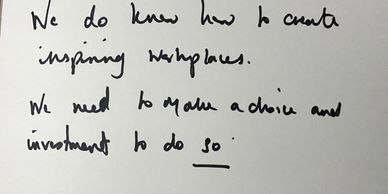 We do know how to create
inspiring workplaces.
We need to make a choice and
investment to do so.